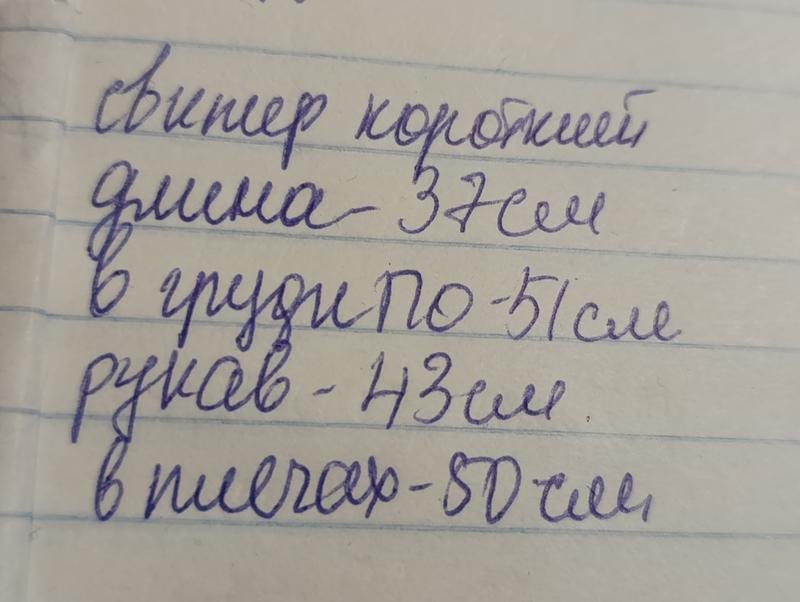 свитер короткий
длина - 37 см
в груди ПО - 51 см
рукав - 43 см
в плечах - 50 см